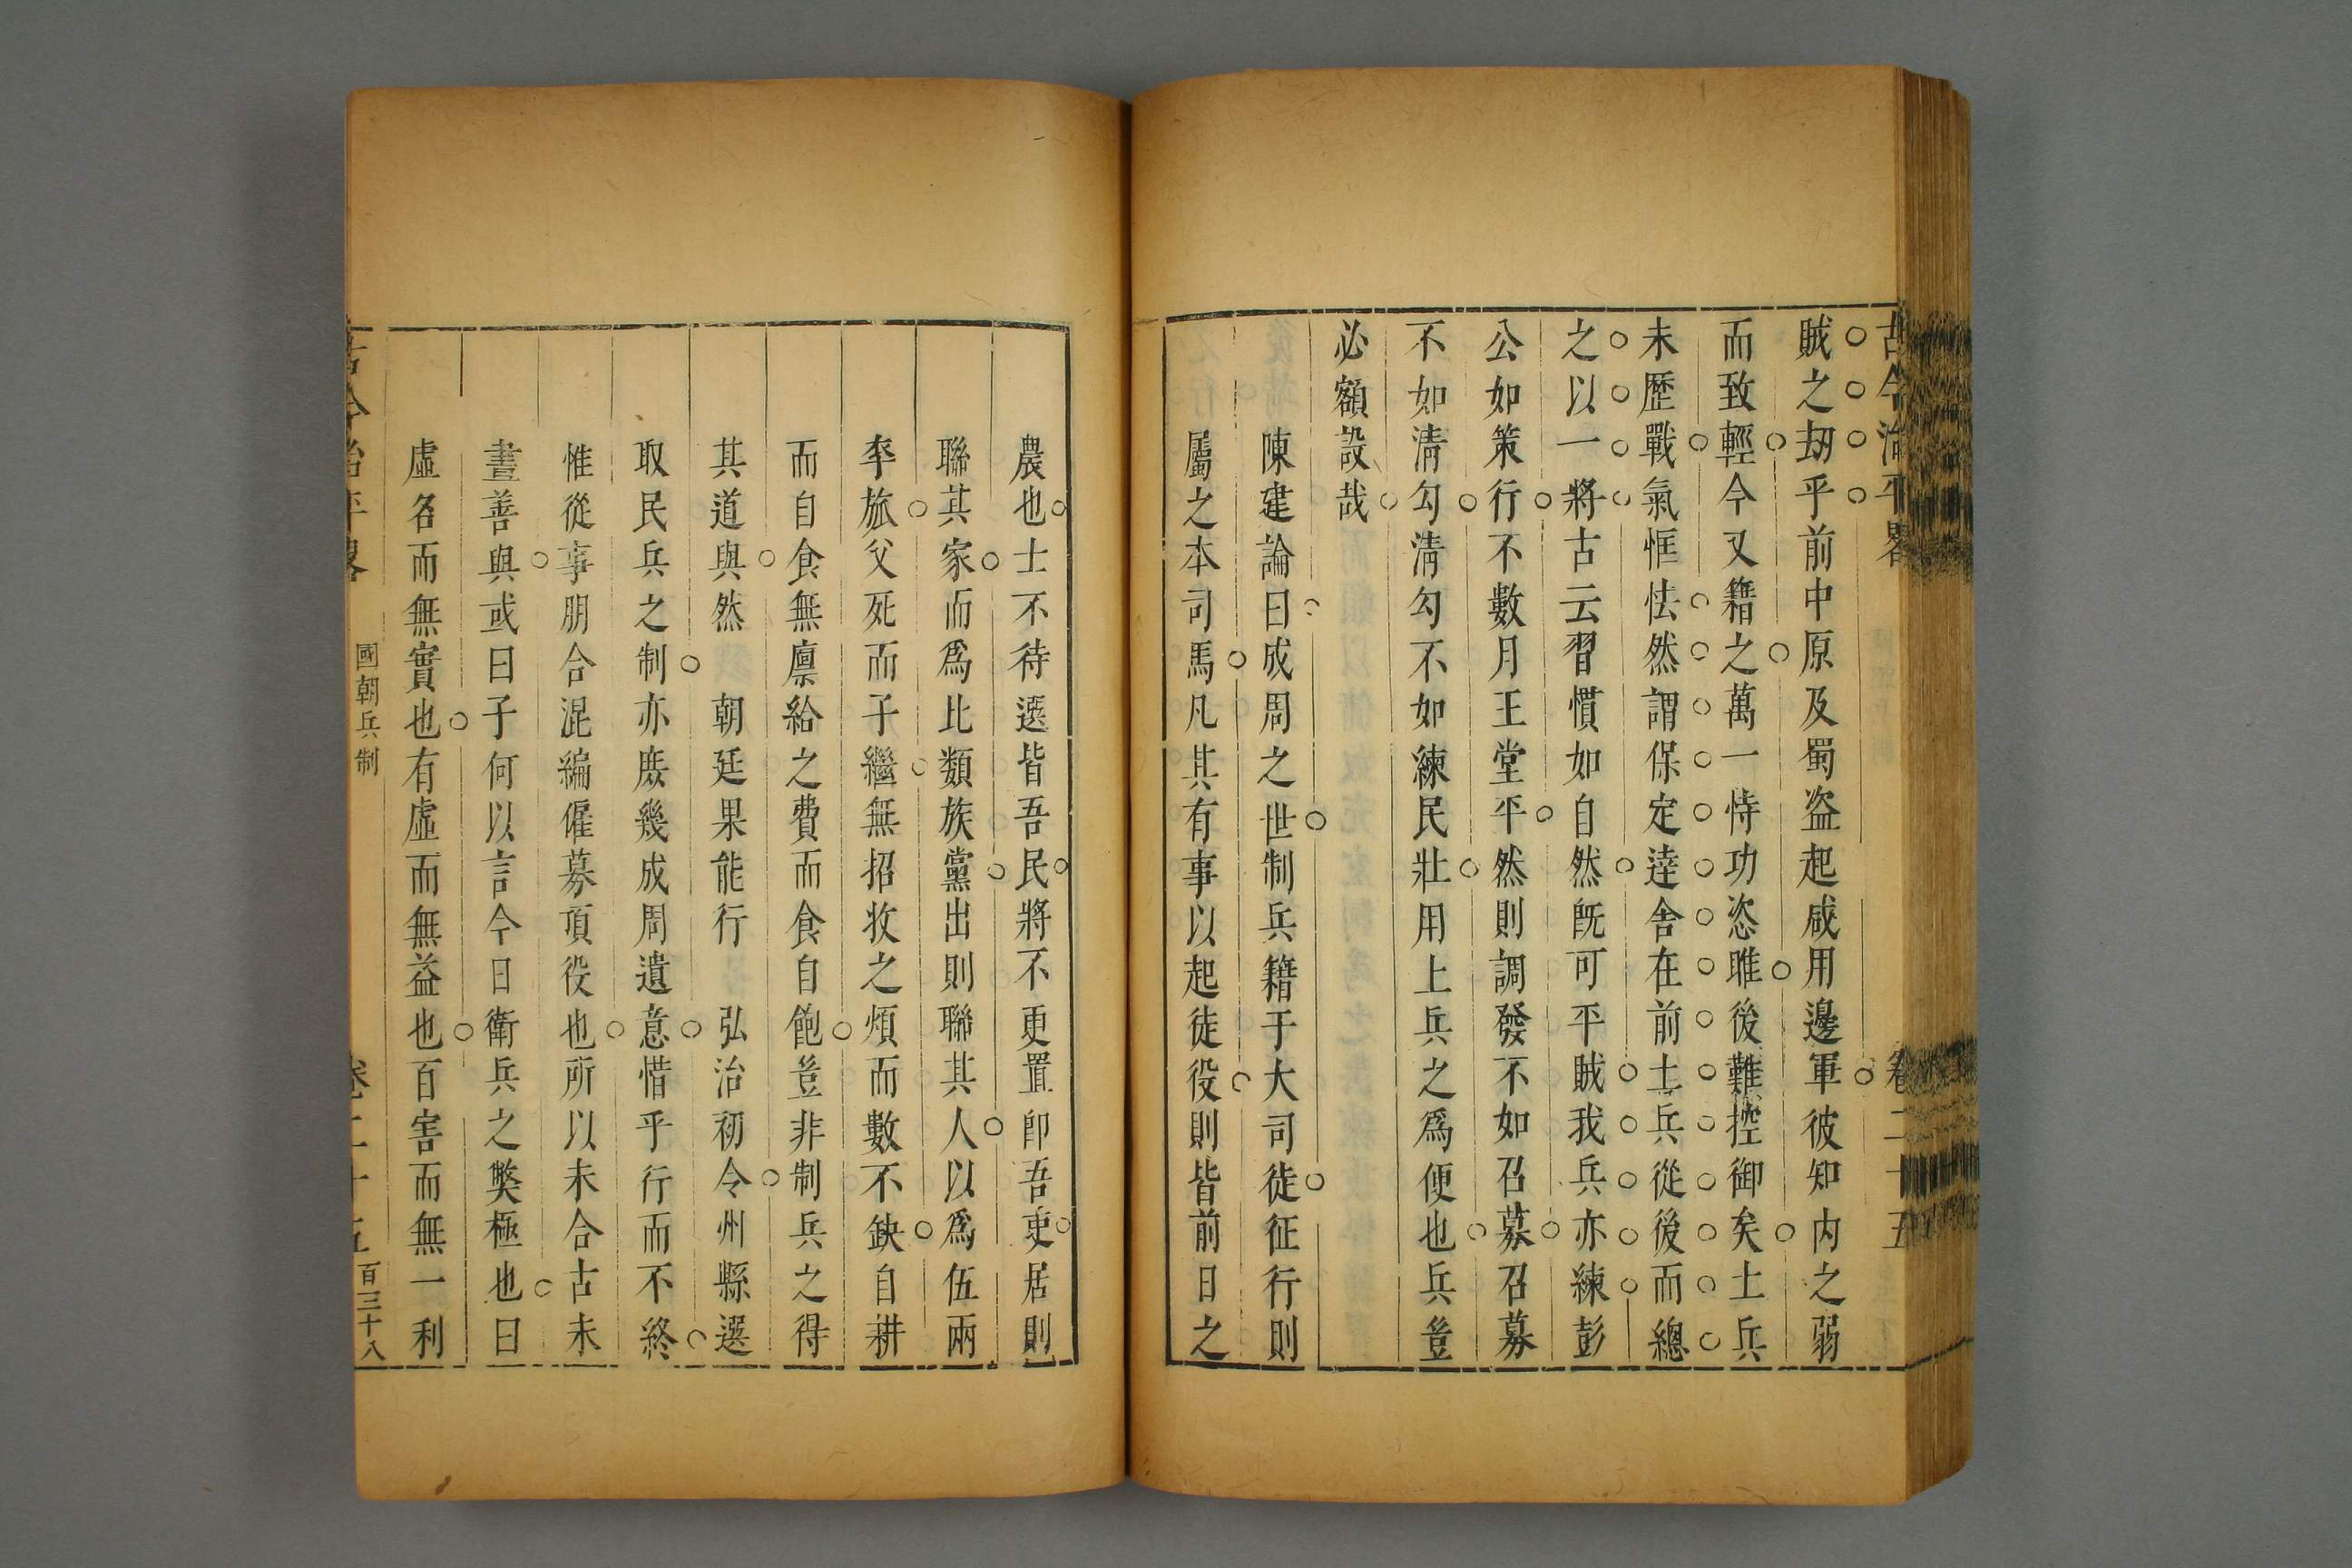 古今治平畧
卷二十五
賊之刼乎前中原及蜀盜起咸用邊軍彼知内之弱
而致輕今又籍之萬一恃功恣雎後難控御矣土兵
未歷戰氣恇怯然謂保定逹舍在前土兵從後而總
之以一將古云習慣如自然旣可平賊我兵亦練彭
公如策行不數月王堂平然則調發不如召募召募
不如清勾清勾不如練民壯用上兵之爲便也兵豈
必額設哉
陳建論曰成周之世制兵籍于大司徒征行則
屬之本司馬凡其有事以起徒役則皆前日之
農也士不待選皆吾民將不更置卽吾吏居則
聯其家而爲比類族黨出則聯其人以爲伍兩
卒旅父死而子繼無招收之煩而數不缺自耕
而自食無廪給之費而食自飽豈非制兵之得
其道與然 朝廷果能行 弘治初令州縣選
取民兵之制亦庶幾成周遺意惜乎行而不終
惟從事朋合混編僱募頂役也所以未合古未
盡善與或曰子何以言今日衛兵之獘極也曰
虛名而無實也有虛而無益也百害而無一利
古今治平畧
國朝兵制
卷二十五
百三十八